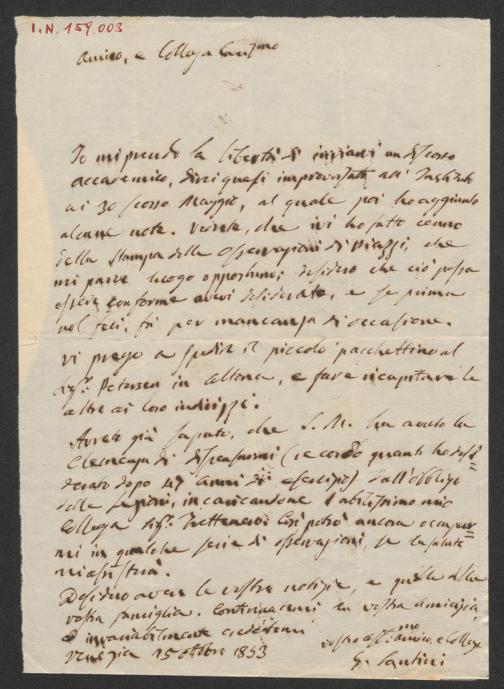 I.N. 159.003
Amico, e Collega Cariſsimo
Io mi prendo la libertà di inviarvi un discorso
accademico, direi quasi improvvisato all' Instituto
ai 30 scorso Maggio, al quale poi ho aggiunto
alcune note. Vedrete, che ivi ho fatto cenno
della stampa delle osservazioni di Piazzi, che
mi parve luogo opportuno; desidero che ciò possa
essere conforme avevi desiderato, e se prima
nol feci, fù per mancanza di occasione.
Vi prego a spedire il piccolo pacchettino al
Sigr. Petersen in Altona, e fare ricapitare le
altre ai loro indirizzi.
Avrete già saputo, che S. M. ha avuto la
Clemenza di dispensarmi (secondo quanto ho desi=
derato dopo 47 anni di esercizio) dall'obbligo
delle lezioni, incaricandone l'abilissimo mio
Collega Sigr. Trettenero. Così potrò ancora occupar=
mi in qualche serie di osservazioni, se la salute
mi assisterà.
Desidero avere le vostre notizie, e quelle della
vostra famiglia. Continuatemi la vostra amicizia,
ed invariabilmente credetemi
Venezia 15 ottobre 1853
vostro aff.mo amico, e Collega
G. Santini